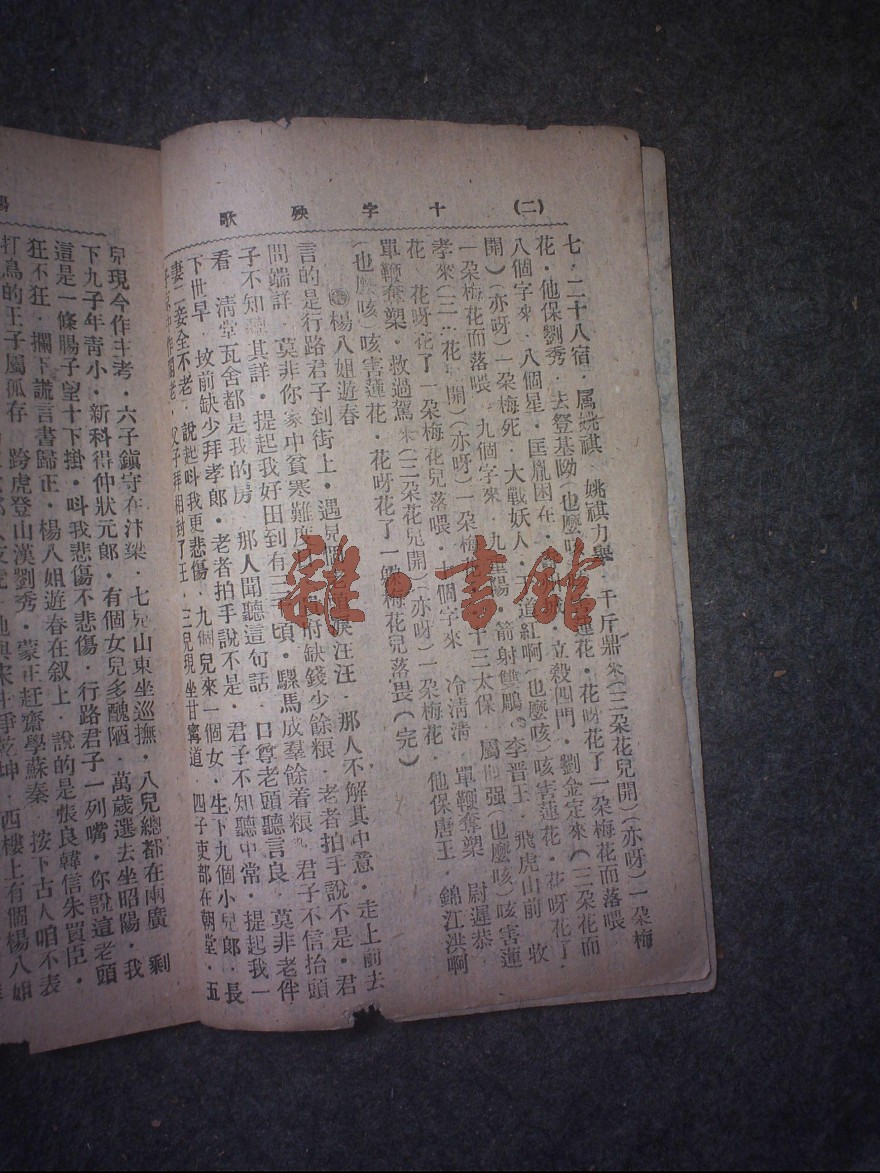 (二) 十字殃歌
七．二十八宿．属姚祺．姚祺力舉．千斤鼎來(三朵花兒開)(亦呀)一朵梅
花．他保劉秀．去登基呦(也麼咳)蓮花．花呀花了一朵梅花而落喂
八個字來．八個星．匡胤困在．立殺四門．劉金定來(三朵花而
開)(亦呀)一朵梅死．大戰妖人．道紅啊(也麼咳)咳害蓮花．花呀花了．
一朵梅花而落喂．九個字來．九里陽．箭射雙鵰．李晋王．飛虎山前．收
孝來(三．花．開)(亦呀)一朵梅．十三太保．屬．强(也麼咳)咳害蓮
花．花呀花了一朵梅花兒落喂．十個字來．冷清清．單鞭奪槊．尉遲恭．
單鞭奪槊．救過駕來(三朵花兒開)(亦呀)一朵梅花．他保唐王．錦江洪啊
(也麼咳)咳害蓮花．花呀花了一朵梅花兒落畏(完)
楊八姐遊春
言的是行路君子到街上．遇見個老淚汪汪．那人不解其中意．走上前去
問端詳．莫非你家中貧寒難度．府缺錢少餘粮．老者拍手說不是．君
子不知聽其詳．提起我好田到有三頃．騾馬成羣餘着粮．君子不信抬頭
看．淸堂瓦舍都是我的房．那人聞聽這句話．口尊老頭聽言良．莫非老伴
下世早．坟前缺少拜孝郎．老者拍手說不是．君子不知聽中常．提起我一
妻二妾全不老．說起呌我更悲傷．九個兒來一個女．生下九個小兒郎．長
子．父子拜相封了王．三兒現坐甘寗道．四子吏部在朝堂．五
兒現今作主考．六子鎭守在汴樑．七兒山東坐巡撫．八兒總都在兩廣．剩
下九子年靑小．新科得仲狀元郎．有個女兒多醜陋．萬歲選去坐昭陽．我
這是一條腸子望十下掛．呌我悲傷不悲傷．行路君子一列嘴．你說這老頭
狂不狂．攔下謊言書歸正．楊八姐遊春在叙上．說的是張良韓信朱買臣．
打鳥的王子屬孤存．跨虎登山漢劉秀．蒙正赶齋學蘇秦．按下古人咱不表
爭乾坤．西樓上有個楊八姐